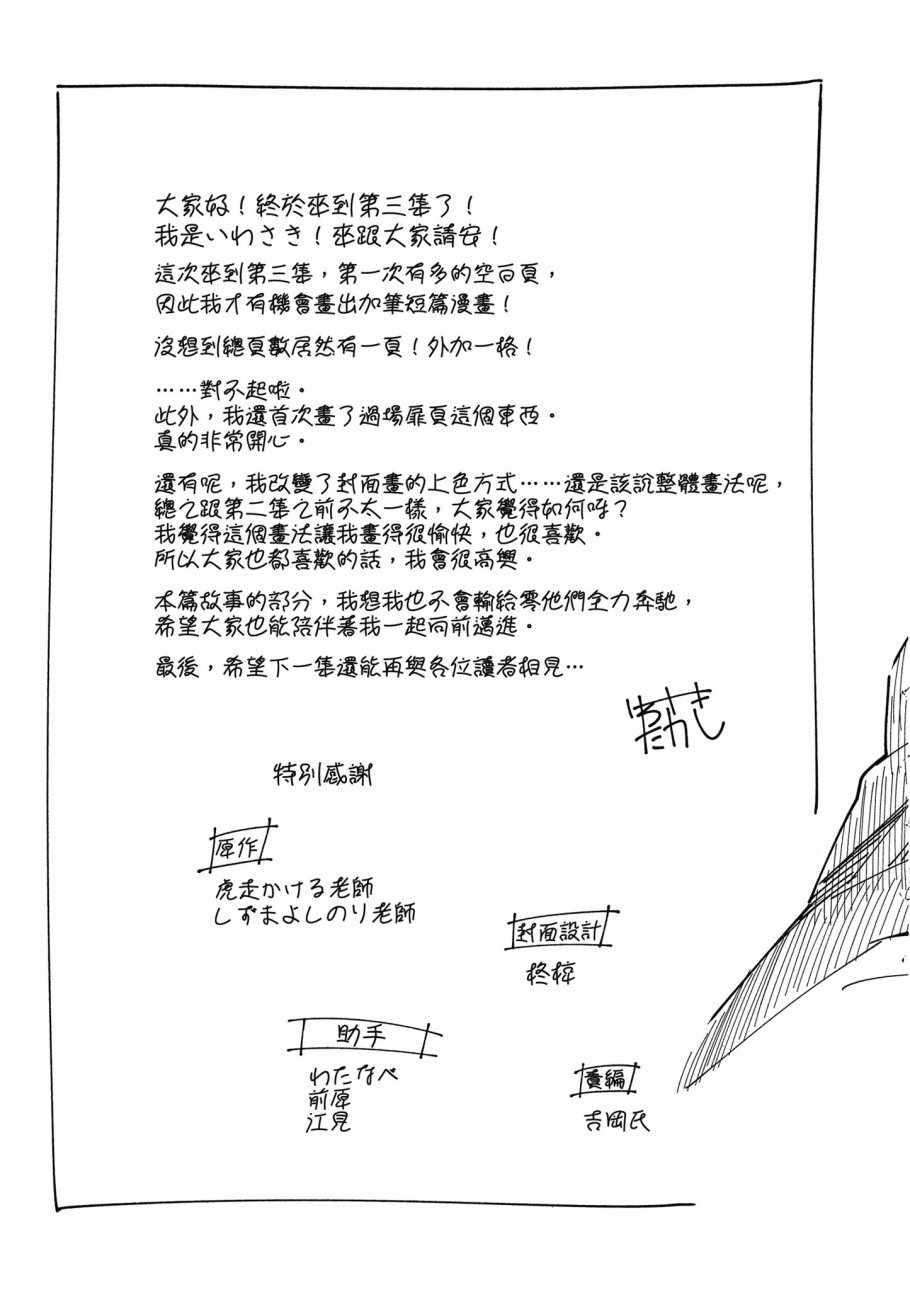 大家好！終於來到第三集了！
我是いわさき！來跟大家請安！
這次來到第三集，第一次有多的空白頁，
因此我才有機會畫出加筆短篇漫畫！
沒想到總頁數居然有一頁！外加一格！
……對不起啦。
此外，我還首次畫了過場扉頁這個東西。
真的非常開心。
還有呢，我改變了封面畫的上色方式……還是該說整體畫法呢，
總之跟第二集之前不太一樣，大家覺得如何呀？
我覺得這個畫法讓我畫得很愉快，也很喜歡。
所以大家也都喜歡的話，我會很高興。
本篇故事的部分，我想我也不會輸給零他們全力奔馳，
希望大家也能陪伴著我一起向前邁進。
最後，希望下一集還能再與各位讀者相見…
特別感謝
原作
虎走かける老師
しずまよしのり老師
封面設計
柊椋
助手
わたなべ
前原
江見
責編
吉岡氏